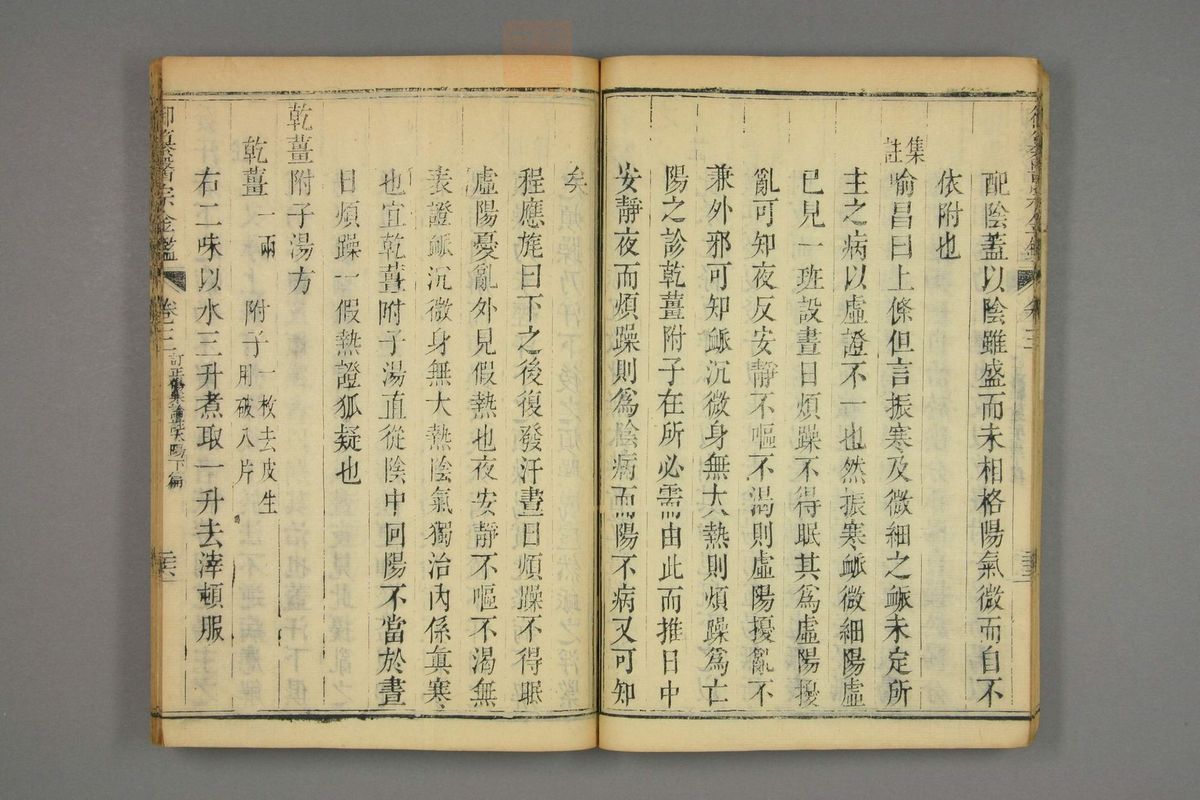 配陰蓋以陰雖盛而未相格陽氣微而自不
依附也
集註
喻昌曰上條但言振寒及微細之脈未定所
主之病以虛證不一也然振寒脈微細陽虛
已見一班設晝日煩躁不得眠其爲虛陽擾
亂可知夜反安靜不嘔不渴則虛陽擾亂不
兼外邪可知脈沉微身無大熱則煩躁爲亡
陽之診乾薑附子在所必需由此而推日中
安靜夜而煩躁則爲陰病而陽不病又可知
矣
程應旄曰下之後復發汗晝日煩躁不得眠
虛陽憂亂外見假熱也夜安靜不嘔不渴無
表證脈沉微身無大熱陰氣獨治內係眞寒
也宜乾薑附子湯直從陰中回陽不當於晝
日煩躁一假熱證狐疑也
乾薑附子湯方
乾薑一兩 附子一枚去皮生用破八片
右二味以水三升煮取一升去滓頓服
御纂醫宗金鑑 卷三 訂正傷寒論註太陽下篇